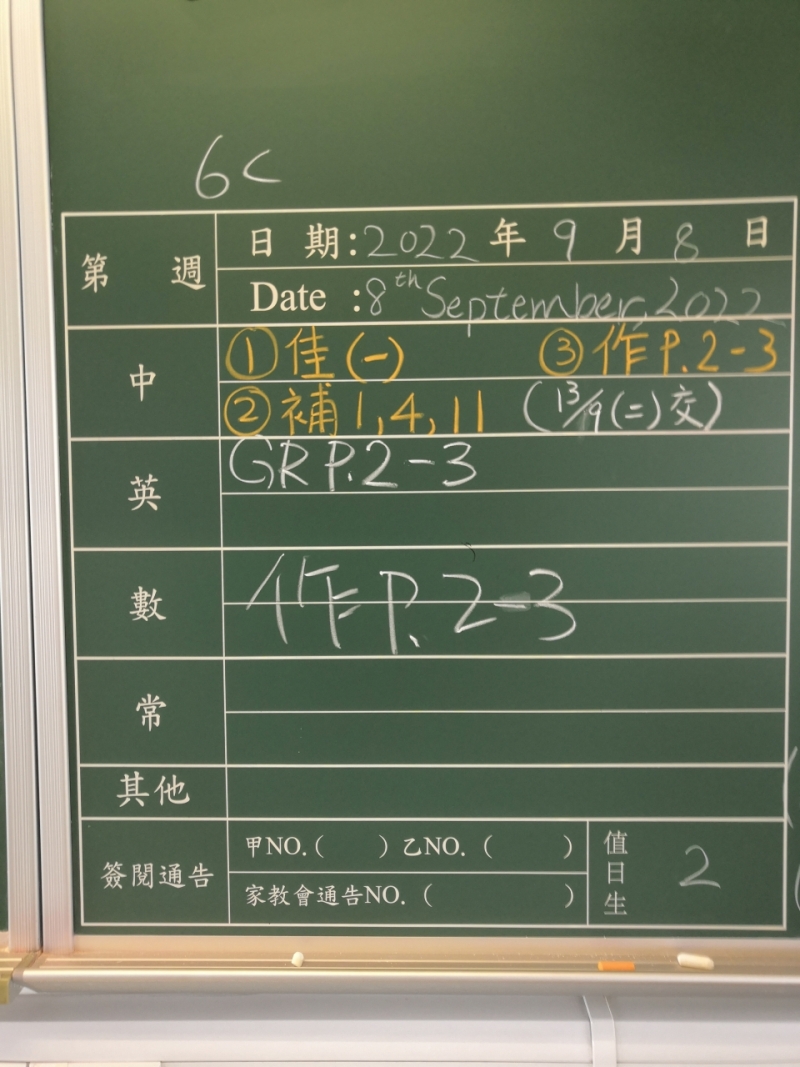 6C
第 週
日 期:2022 年 9 月 8 日
Date :8th September, 2022
中
①佳(一) ③作P.2-3
②補1,4,11 (13/9(二)交)
英
GR P.2-3
數
作P.2-3
常
其他
簽閱通告
甲NO.( ) 乙NO.( )
家教會通告NO.( )
值日生
2